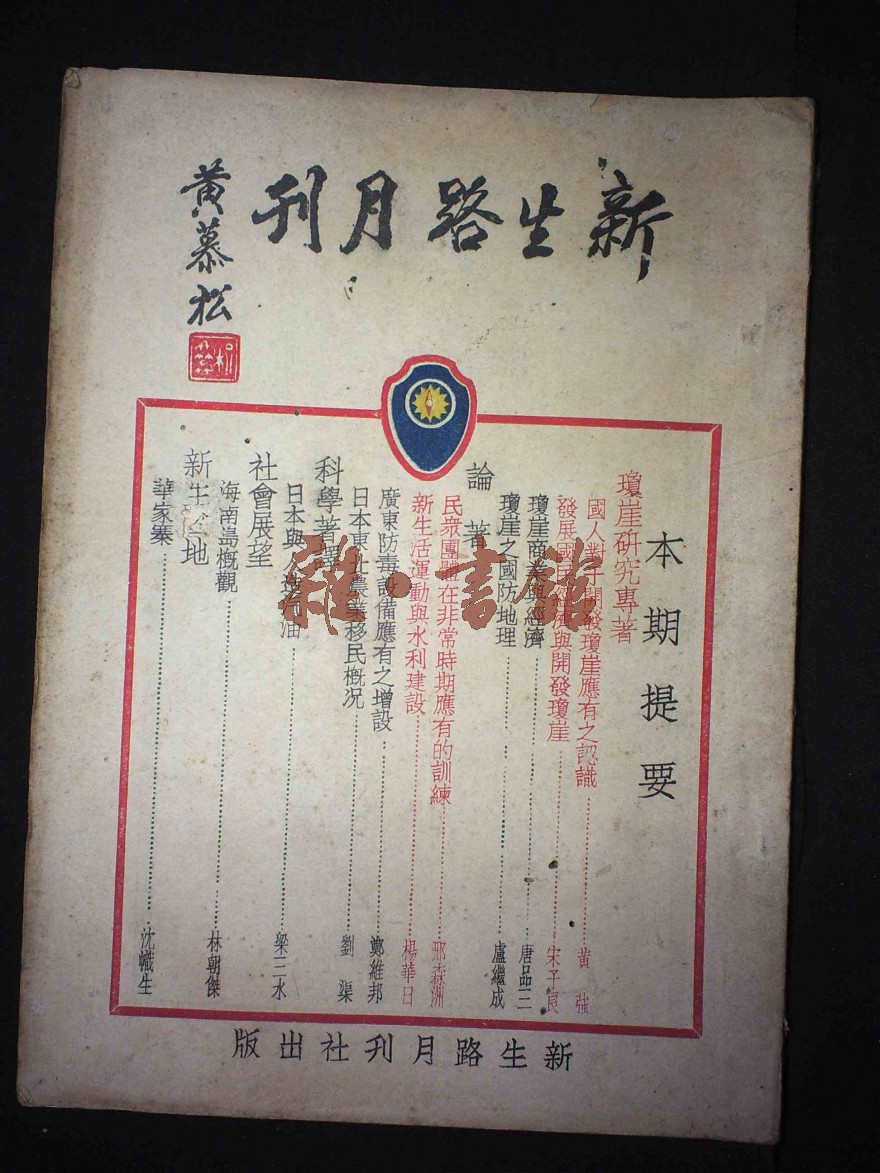 新生路月刊
黃慕松
本期提要
瓊崖研究專著
國人對于開發瓊崖應有之認識 黃強
發展國民經濟與開發瓊崖 宋子良
瓊崖商業與經濟 唐品三
瓊崖之國防地理 盧繼成
論著
民衆團體在非常時期應有的訓練 邢森洲
新生活運動與水利建設 楊華日
廣東防毒設備應有之增設 鄭維邦
日本東北農業移民概况 劉渠
科學著譯
日本與人造汽油 梁三水
社會展望
海南島概觀 林朝傑
新生園地
華家寨 沈幟生
新生路月刊社出版
雜·書館